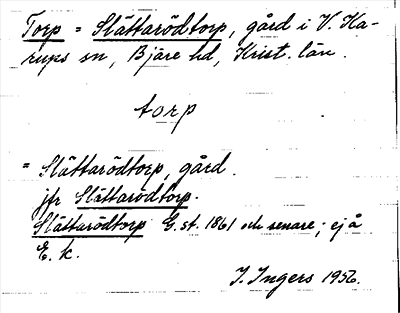 Torp = Slättarödtorp, gård i V. Ka-
rups sn, Bjäre hd, Krist. län.
torp
= Slättarödtorp, gård.
jfr Slättarödtorp.
Slättarödtorp G. st. 1861 och senare; ej å
E. k.
I. Ingers 1956.